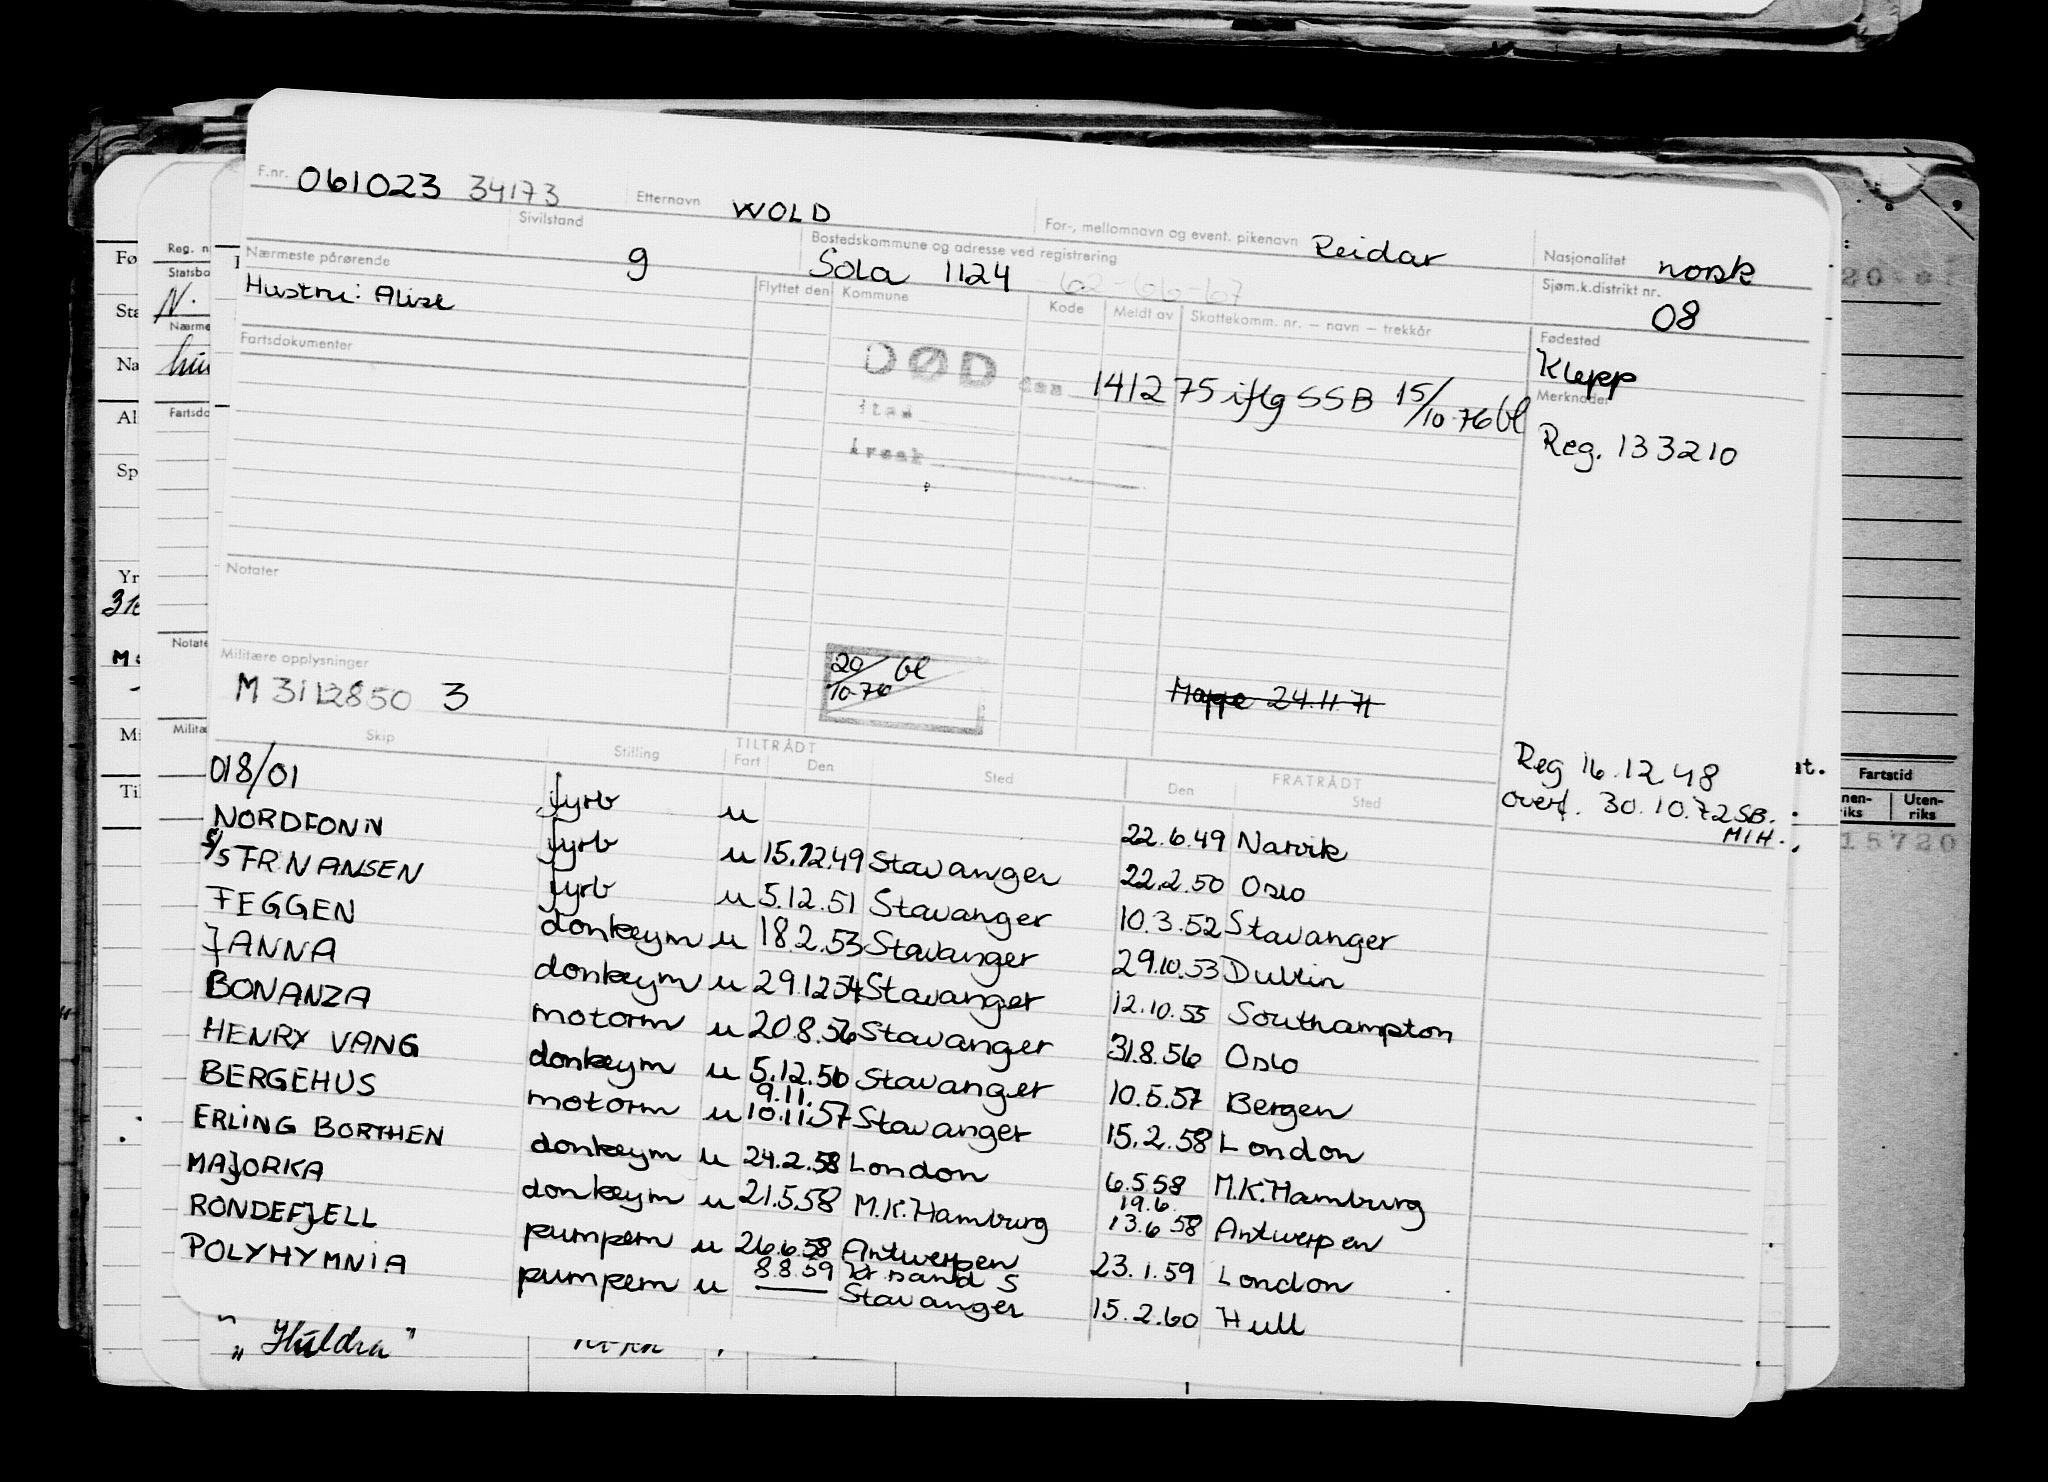 F.nr. 061023 34173 Etternavn WOLD For-, mellomnavn og event. pikenavn Reidar Nasjonalitet norsk
Sivilstand g Bostedskommune og adresse ved registrering Sola 1124 62-66-67 Sjøm.k.distrikt nr. 08
Nærmeste pårørende Flyttet den Kommune Kode Meldt av Skattekomm. nr. — navn — trekkår Fødested
Hustru: Alise Klepp
Fartsdokumenter DØD den 141275 iflg SSB 15/10-76 bl Merknader
sted
årsak
Reg. 133210
Notater
Militære opplysninger
M 3112850 3
20/10-76 bl
Mappe 24.11.71
Reg 16.12.48
overf. 30.10.72 SB.
MIH.
Skip Stilling TILTRÅDT Fart Den Sted FRATRÅDT Den Sted
018/01 fyrb u 22.6.49 Narvik
NORDFONN fyrb u 15.12.49 Stavanger 22.2.50 Oslo
S/S FR NANSEN fyrb u 5.12.51 Stavanger 10.3.52 Stavanger
FEGGEN donkeym u 18.2.53 Stavanger 29.10.53 Dublin
JANNA donkeym u 29.12 54 Stavanger 12.10.55 Southampton
BONANZA motorm u 20.8.56 Stavanger 31.8.56 Oslo
HENRY VANG donkeym u 5.12.56 Stavanger 10.5.57 Bergen
BERGEHUS motorm u 9.11. 10.11.57 Stavanger 15.2.58 London
ERLING BORTHEN donkeym u 24.2.58 London 6.5.58 M.K. Hamburg
MAJORKA donkeym u 21.5.58 M.K. Hamburg 19.6. 13.6 58 Antwerpen
RONDEFJELL pumpem u 26.6.58 Antwerpen 23.1.59 London
POLYHYMNIA pumpem u 8.8.59 Kr sand S Stavanger 15.2.60 Hull
"Huldra"
Fø
Sta
Na
Al
Sp
Yr
Mi
Til
Reg. n
Statsbo
N.
Nærme
hu
Fartsdo
Notate
Militæ
at.
Fartstid
nen-riks Uten-riks
15720